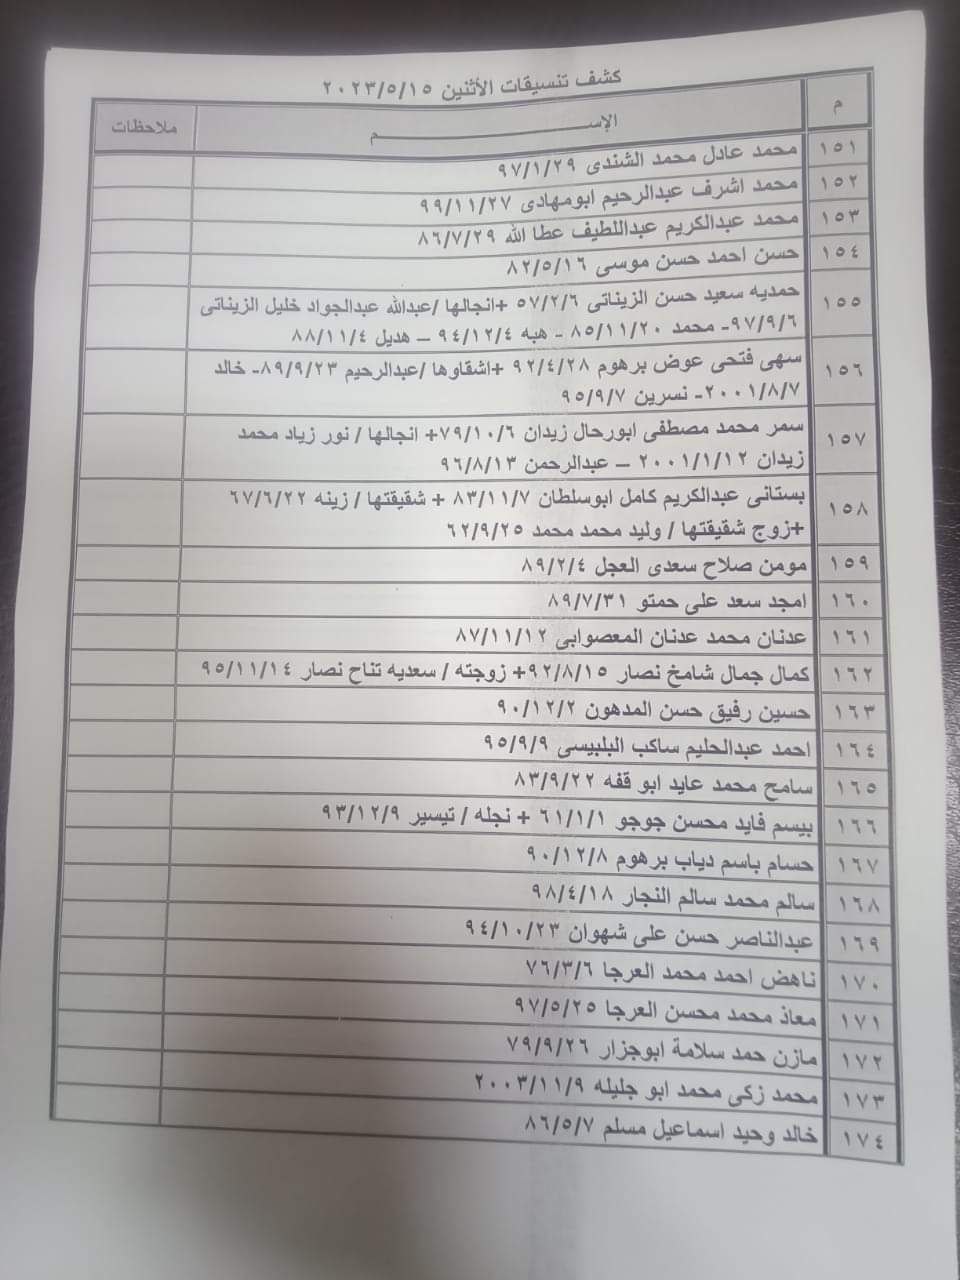 كشف تنسيقات الأثنين ٢٠٢٣/٥/١٥
م الإســـــم ملاحظات
١٥١ محمد عادل محمد الشندى ٩٧/١/٢٩
١٥٢ محمد اشرف عبدالرحيم ابومهادى ٩٩/١١/٢٧
١٥٣ محمد عبدالكريم عبداللطيف عطا الله ٨٦/٧/٢٩
١٥٤ حسن احمد حسن موسى ٨٢/٥/١٦
١٥٥ حمديه سعيد حسن الزيناتى ٥٧/٢/٦ +انجالها /عبدالله عبدالجواد خليل الزيناتى
٩٧/٩/٦- محمد ٨٥/١١/٢٠ - هبه ٩٤/١٢/٤ – هديل ٨٨/١١/٤
١٥٦ سهى فتحى عوض برهوم ٩٢/٤/٢٨ +اشقاوها /عبدالرحيم ٨٩/٩/٢٣- خالد
٢٠٠١/٨/٧- نسرين ٩٥/٩/٧
١٥٧ سمر محمد مصطفى ابورحال زيدان ٧٩/١٠/٦+ انجالها / نور زياد محمد
زيدان ٢٠٠١/١/١٢ – عبدالرحمن ٩٦/٨/١٣
١٥٨ بستانى عبدالكريم كامل ابوسلطان ٨٣/١١/٧ + شقيقتها / زينه ٦٧/٦/٢٢
+زوج شقيقتها / وليد محمد محمد ٦٢/٩/٢٥
١٥٩ مومن صلاح سعدى العجل ٨٩/٢/٤
١٦٠ امجد سعد على حمتو ٨٩/٧/٣١
١٦١ عدنان محمد عدنان المعصوابى ٨٧/١١/١٢
١٦٢ كمال جمال شامخ نصار ٩٢/٨/١٥+ زوجته / سعديه تناح نصار ٩٥/١١/١٤
١٦٣ حسين رفيق حسن المدهون ٩٠/١٢/٢
١٦٤ احمد عبدالحليم ساكب البلبيسى ٩٥/٩/٩
١٦٥ سامح محمد عايد ابو قفه ٨٣/٩/٢٢
١٦٦ بيسم فايد محسن جوجو ٦١/١/١ + نجله / تيسير ٩٣/١٢/٩
١٦٧ حسام باسم دياب برهوم ٩٠/١٢/٨
١٦٨ سالم محمد سالم النجار ٩٨/٤/١٨
١٦٩ عبدالناصر حسن على شهوان ٩٤/١٠/٢٣
١٧٠ ناهض احمد محمد العرجا ٧٦/٣/٦
١٧١ معاذ محمد محسن العرجا ٩٧/٥/٢٥
١٧٢ مازن حمد سلامة ابوجزار ٧٩/٩/٢٦
١٧٣ محمد زكى محمد ابو جليله ٢٠٠٣/١١/٩
١٧٤ خالد وحيد اسماعيل مسلم ٨٦/٥/٧